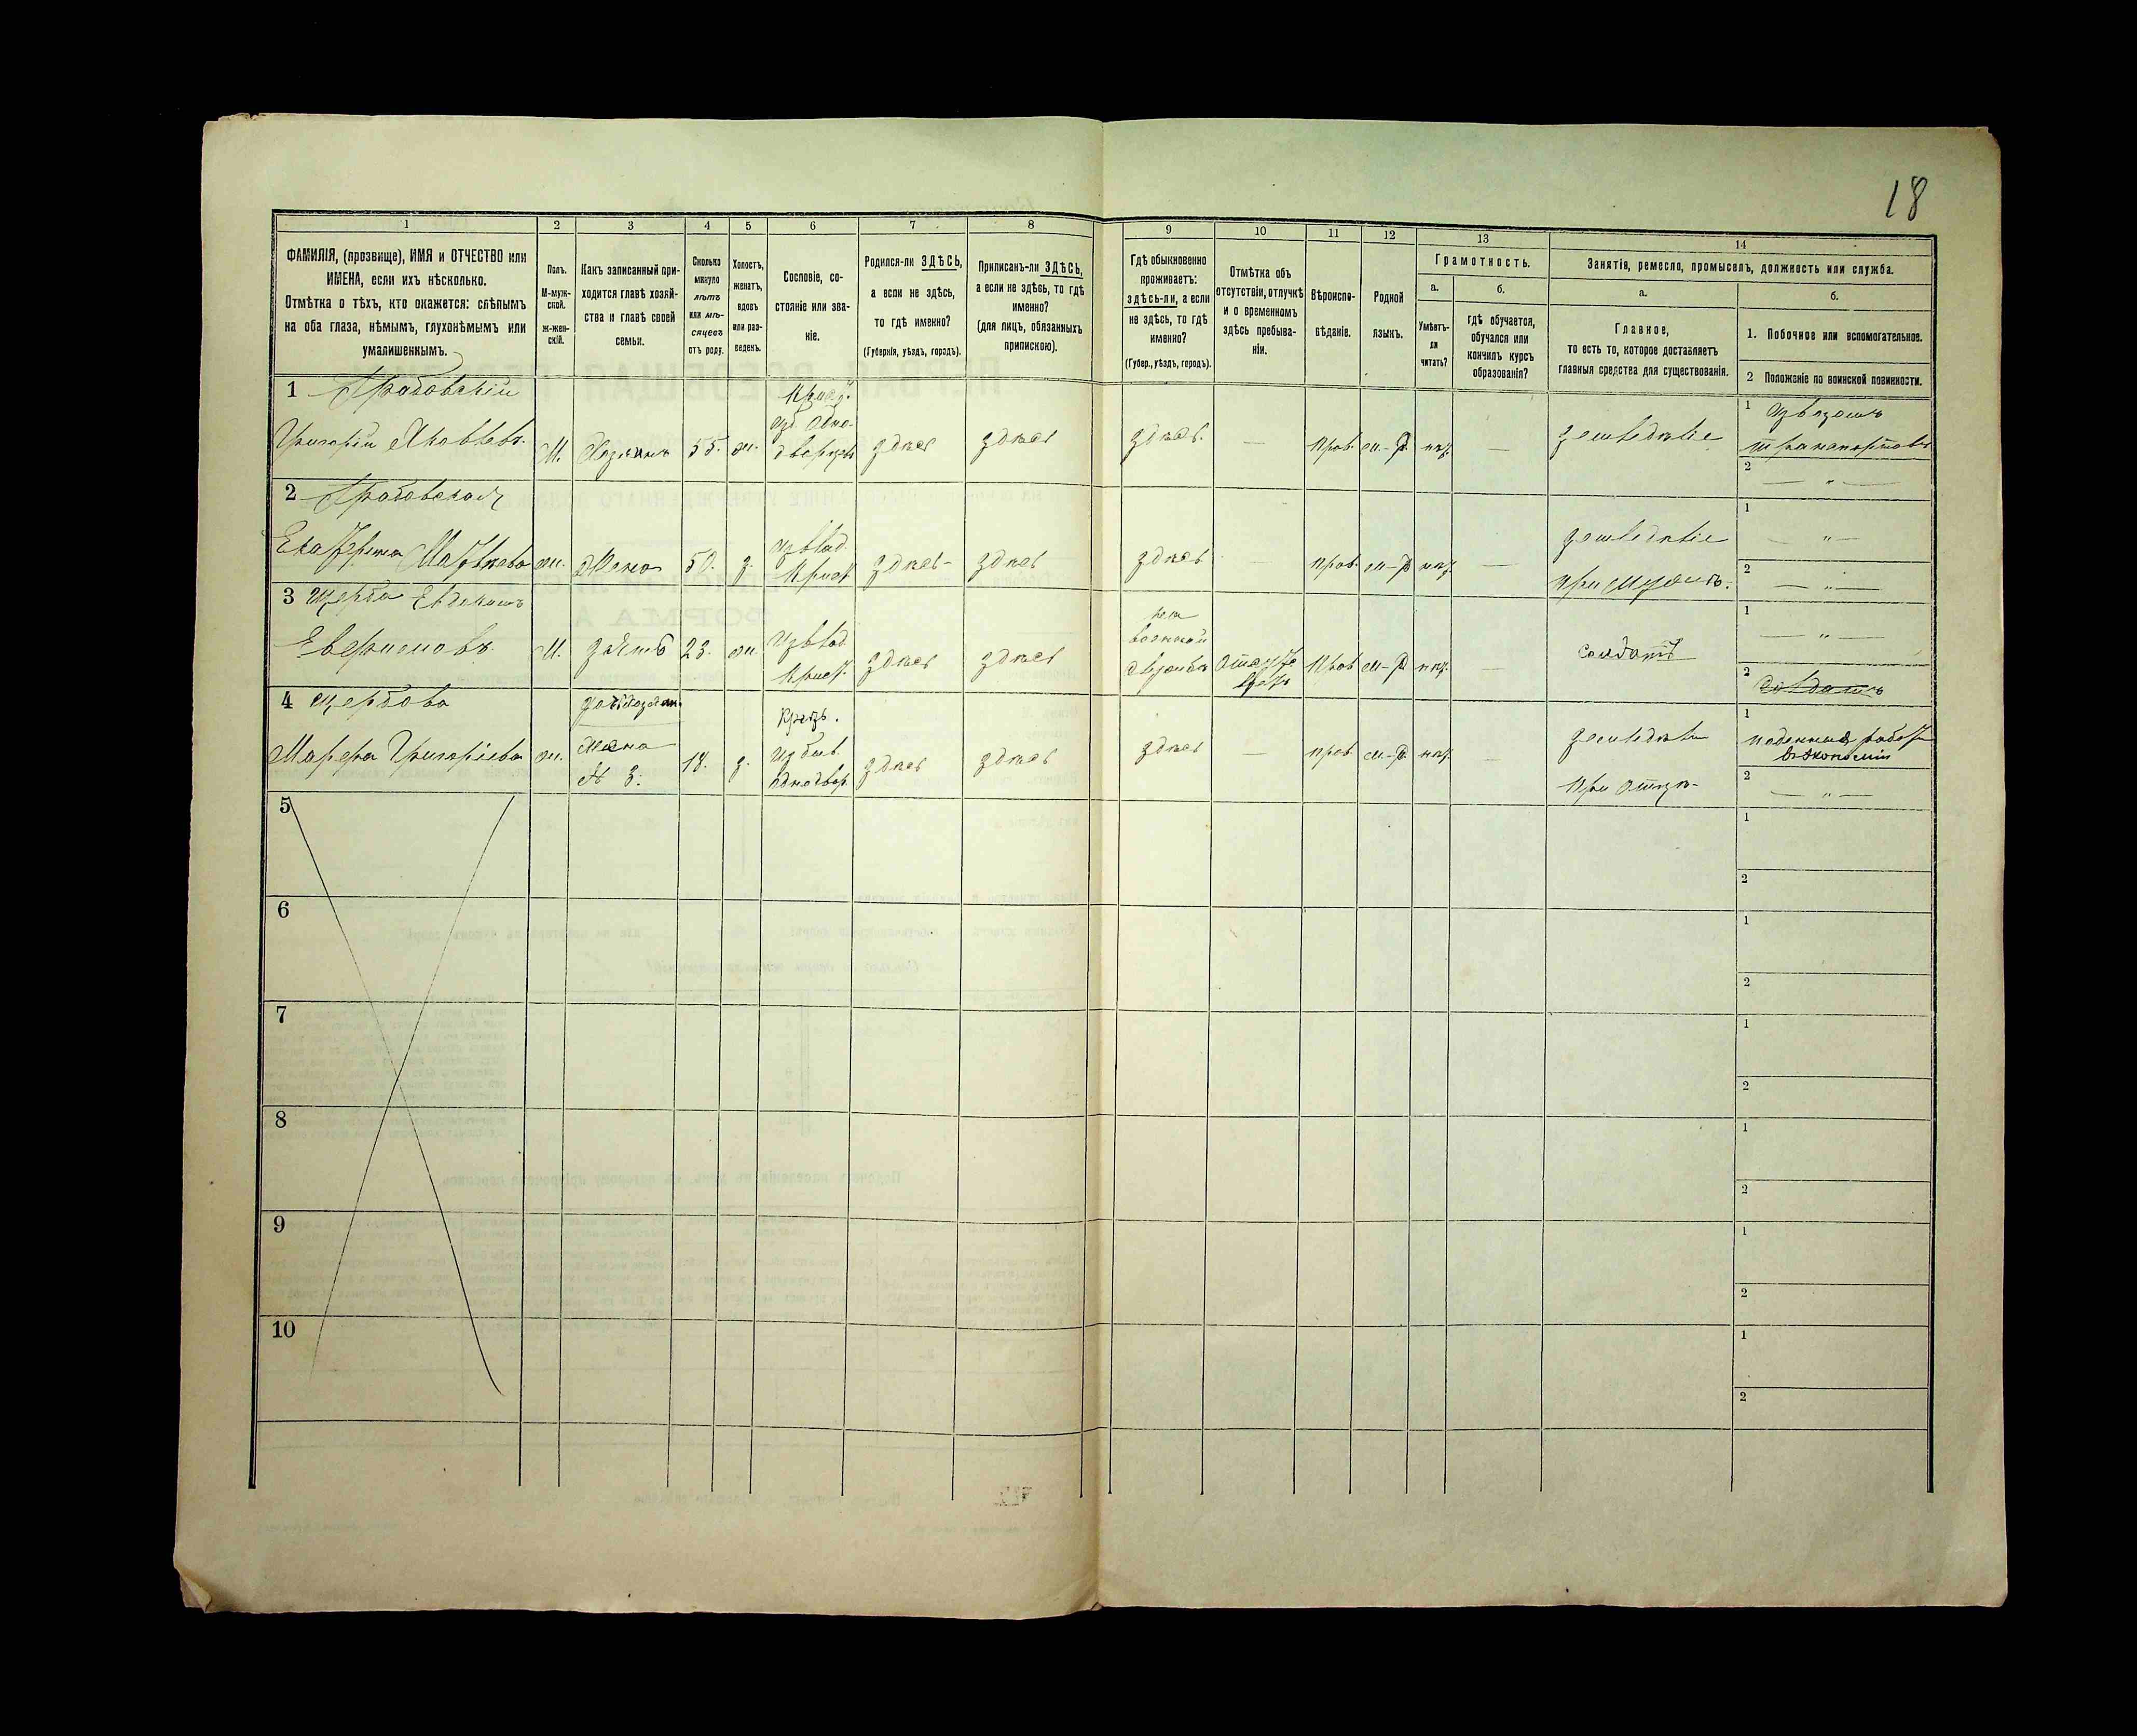 18
1
2
3
4
5
6
7
8
9
10
11
12
13
14
ФАМИЛІЯ, (прозвище), ИМЯ и ОТЧЕСТВО или
ИМЕНА, если ихъ нѣсколько.
Отмѣтка о тѣхъ, кто окажется: слѣпымъ
на оба глаза, нѣмымъ, глухонѣмымъ или
умалишеннымъ.
Полъ.
М-муж-
ской.
Ж-жен-
скій.
Какъ записанный при-
ходится главѣ хозяй-
ства и главѣ своей
семьи.
Сколько
минуло
лѣтъ
или мѣ-
сяцевъ
отъ роду.
Холостъ,
женатъ,
вдовъ
или раз-
веденъ.
Сословіе, со-
стояніе или зва-
ніе.
Родился-ли ЗДѢСЬ,
а если не здѣсь,
то гдѣ именно?
(Губернія, уѣздъ, городъ).
Приписанъ-ли ЗДѢСЬ,
а если не здѣсь, то гдѣ
именно?
(для лицъ, обязанныхъ
припискою).
Гдѣ обыкновенно
проживаетъ:
здѣсь-ли, а если
не здѣсь, то гдѣ
именно?
(Губер., уѣздъ, городъ).
Отмѣтка объ
отсутствіи, отлучкѣ
и о временномъ
здѣсь пребыва-
ніи.
Вѣроиспо-
вѣданіе.
Родной
языкъ.
Грамотность.
а.
Умѣетъ-
ли
читать?
б.
гдѣ обучается,
обучался или
кончилъ курсъ
образованія?
Занятія, ремесло, промыселъ, должность или служба.
а.
Главное,
то есть то, которое доставляетъ
главныя средства для существованія.
б.
1. Побочное или вспомогательное.
2 Положеніе по воинской повинности.
1 Грабовскій
Григорій Яковлевъ.
М.
Хозяинъ
55.
ж.
Крест.
изъ Одно-
дворцевъ
здѣсь
здѣсь
здѣсь.
—
прав.
м-р.
нѣт.
—
земледѣліе
1 Извозомъ
транспортовъ
2
— " —
2 Грабовская
Екатерина Матвѣева
ж.
Жена
50.
з.
Изъ влад.
Крест.
здѣсь-
здѣсь
здѣсь
—
прав.
м-р
нѣт.
—
земледѣліе
при мужѣ.
1
— " —
2
— " —
3 Щерба Евдокимъ
М.
зять
23.
ж.
Изъ влад
Крест.
здѣсь
здѣсь
на
военной
службѣ
Прав.
м-р
нѣт.
—
солдатъ
1
— " —
2 Солдатъ
4 Щербова
Марфа Григоріева
ж.
дочь хозяина
жена
№ 3.
18.
з.
Крест.
Из быв.
однодвор.
здѣсь
здѣсь
здѣсь
—
прав
м-р
нѣт.
—
земледѣліе
при отцѣ-
1 поденная работа
въ экономіи
2
— " —
5
1
2
6
1
2
7
1
2
8
1
2
9
1
2
10
1
2